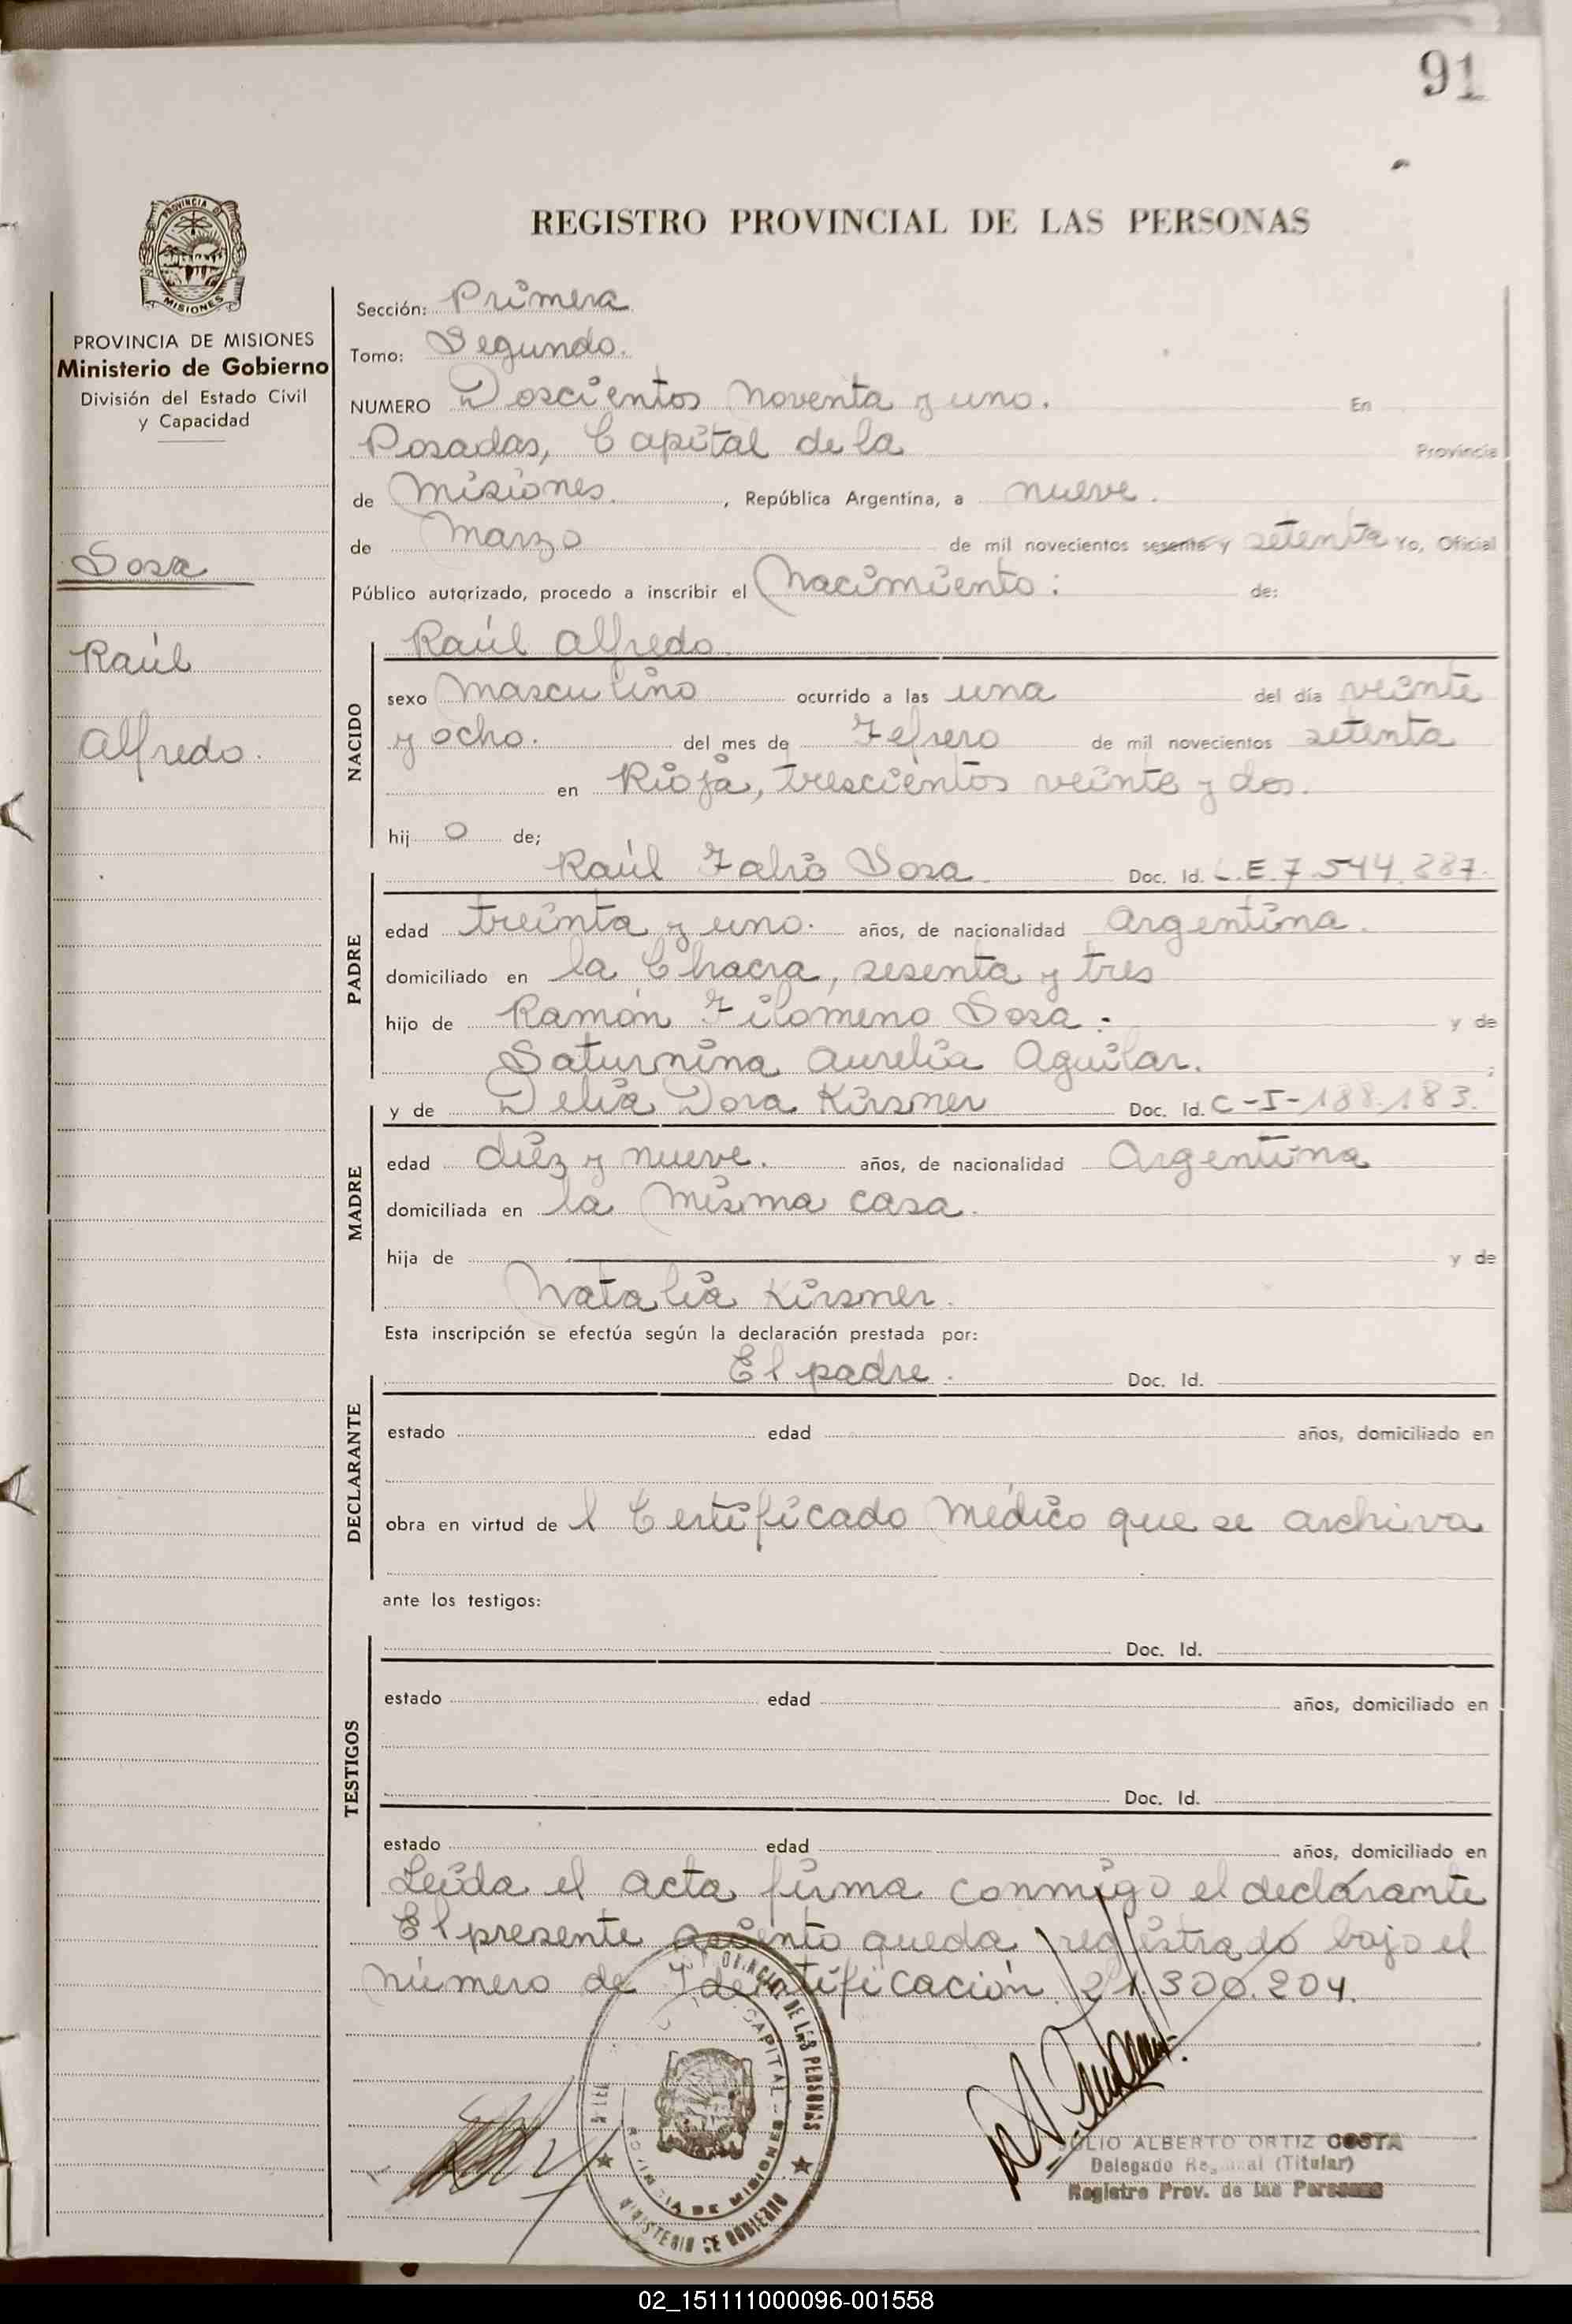 91
PROVINCIA DE
MISIONES
REGISTRO PROVINCIAL DE LAS PERSONAS
PROVINCIA DE MISIONES
Ministerio de Gobierno
División del Estado Civil
y Capacidad
Sosa
Raúl
Alfredo.
Sección: Primera
Tomo: Segundo.
NUMERO Doscientos noventa y uno. En
Posadas, Capital de la Provincia
de Misiones. , República Argentina, a nueve.
de Marzo de mil novecientos sesenta y setenta Yo, Oficial
Público autorizado, procedo a inscribir el Nacimiento: de:
NACIDO
Raúl Alfredo.
sexo Masculino ocurrido a las una del día veinte
y ocho. del mes de Febrero de mil novecientos setenta
en Rioja, trescientos veinte y dos.
hij o de;
PADRE
Raúl Fabio Sosa Doc. Id. L.E.7.544.887.
edad treinta y uno. años, de nacionalidad Argentina.
domiciliado en la Chacra, sesenta y tres
hijo de Ramón Filomeno Sosa.- y de
Saturnina Aurelia Aguilar. ;
MADRE
y de Delia Dora Kirsner Doc. Id. C-I-188.183.
edad diez y nueve. años, de nacionalidad Argentina
domiciliada en la misma casa.
hija de y de
Natalia Kirsner.
Esta inscripción se efectúa según la declaración prestada por:
DECLARANTE
El padre. Doc. Id.
estado edad años, domiciliado en
obra en virtud de l Certificado Médico que se archiva
ante los testigos:
TESTIGOS
Doc. Id.
estado edad años, domiciliado en
Doc. Id.
estado edad años, domiciliado en
Leida el acta firma conmigo el declarante
El presente asiento queda registrado bajo el
número de Identificación. 21.300.204.
DE LAS PERSONAS
CAPITAL
DE MISIONES
MINISTERIO DE GOBIERNO
JULIO ALBERTO ORTIZ COSTA
Delegado Regional (Titular)
Registro Prov. de las Personas
02_151111000096-001558